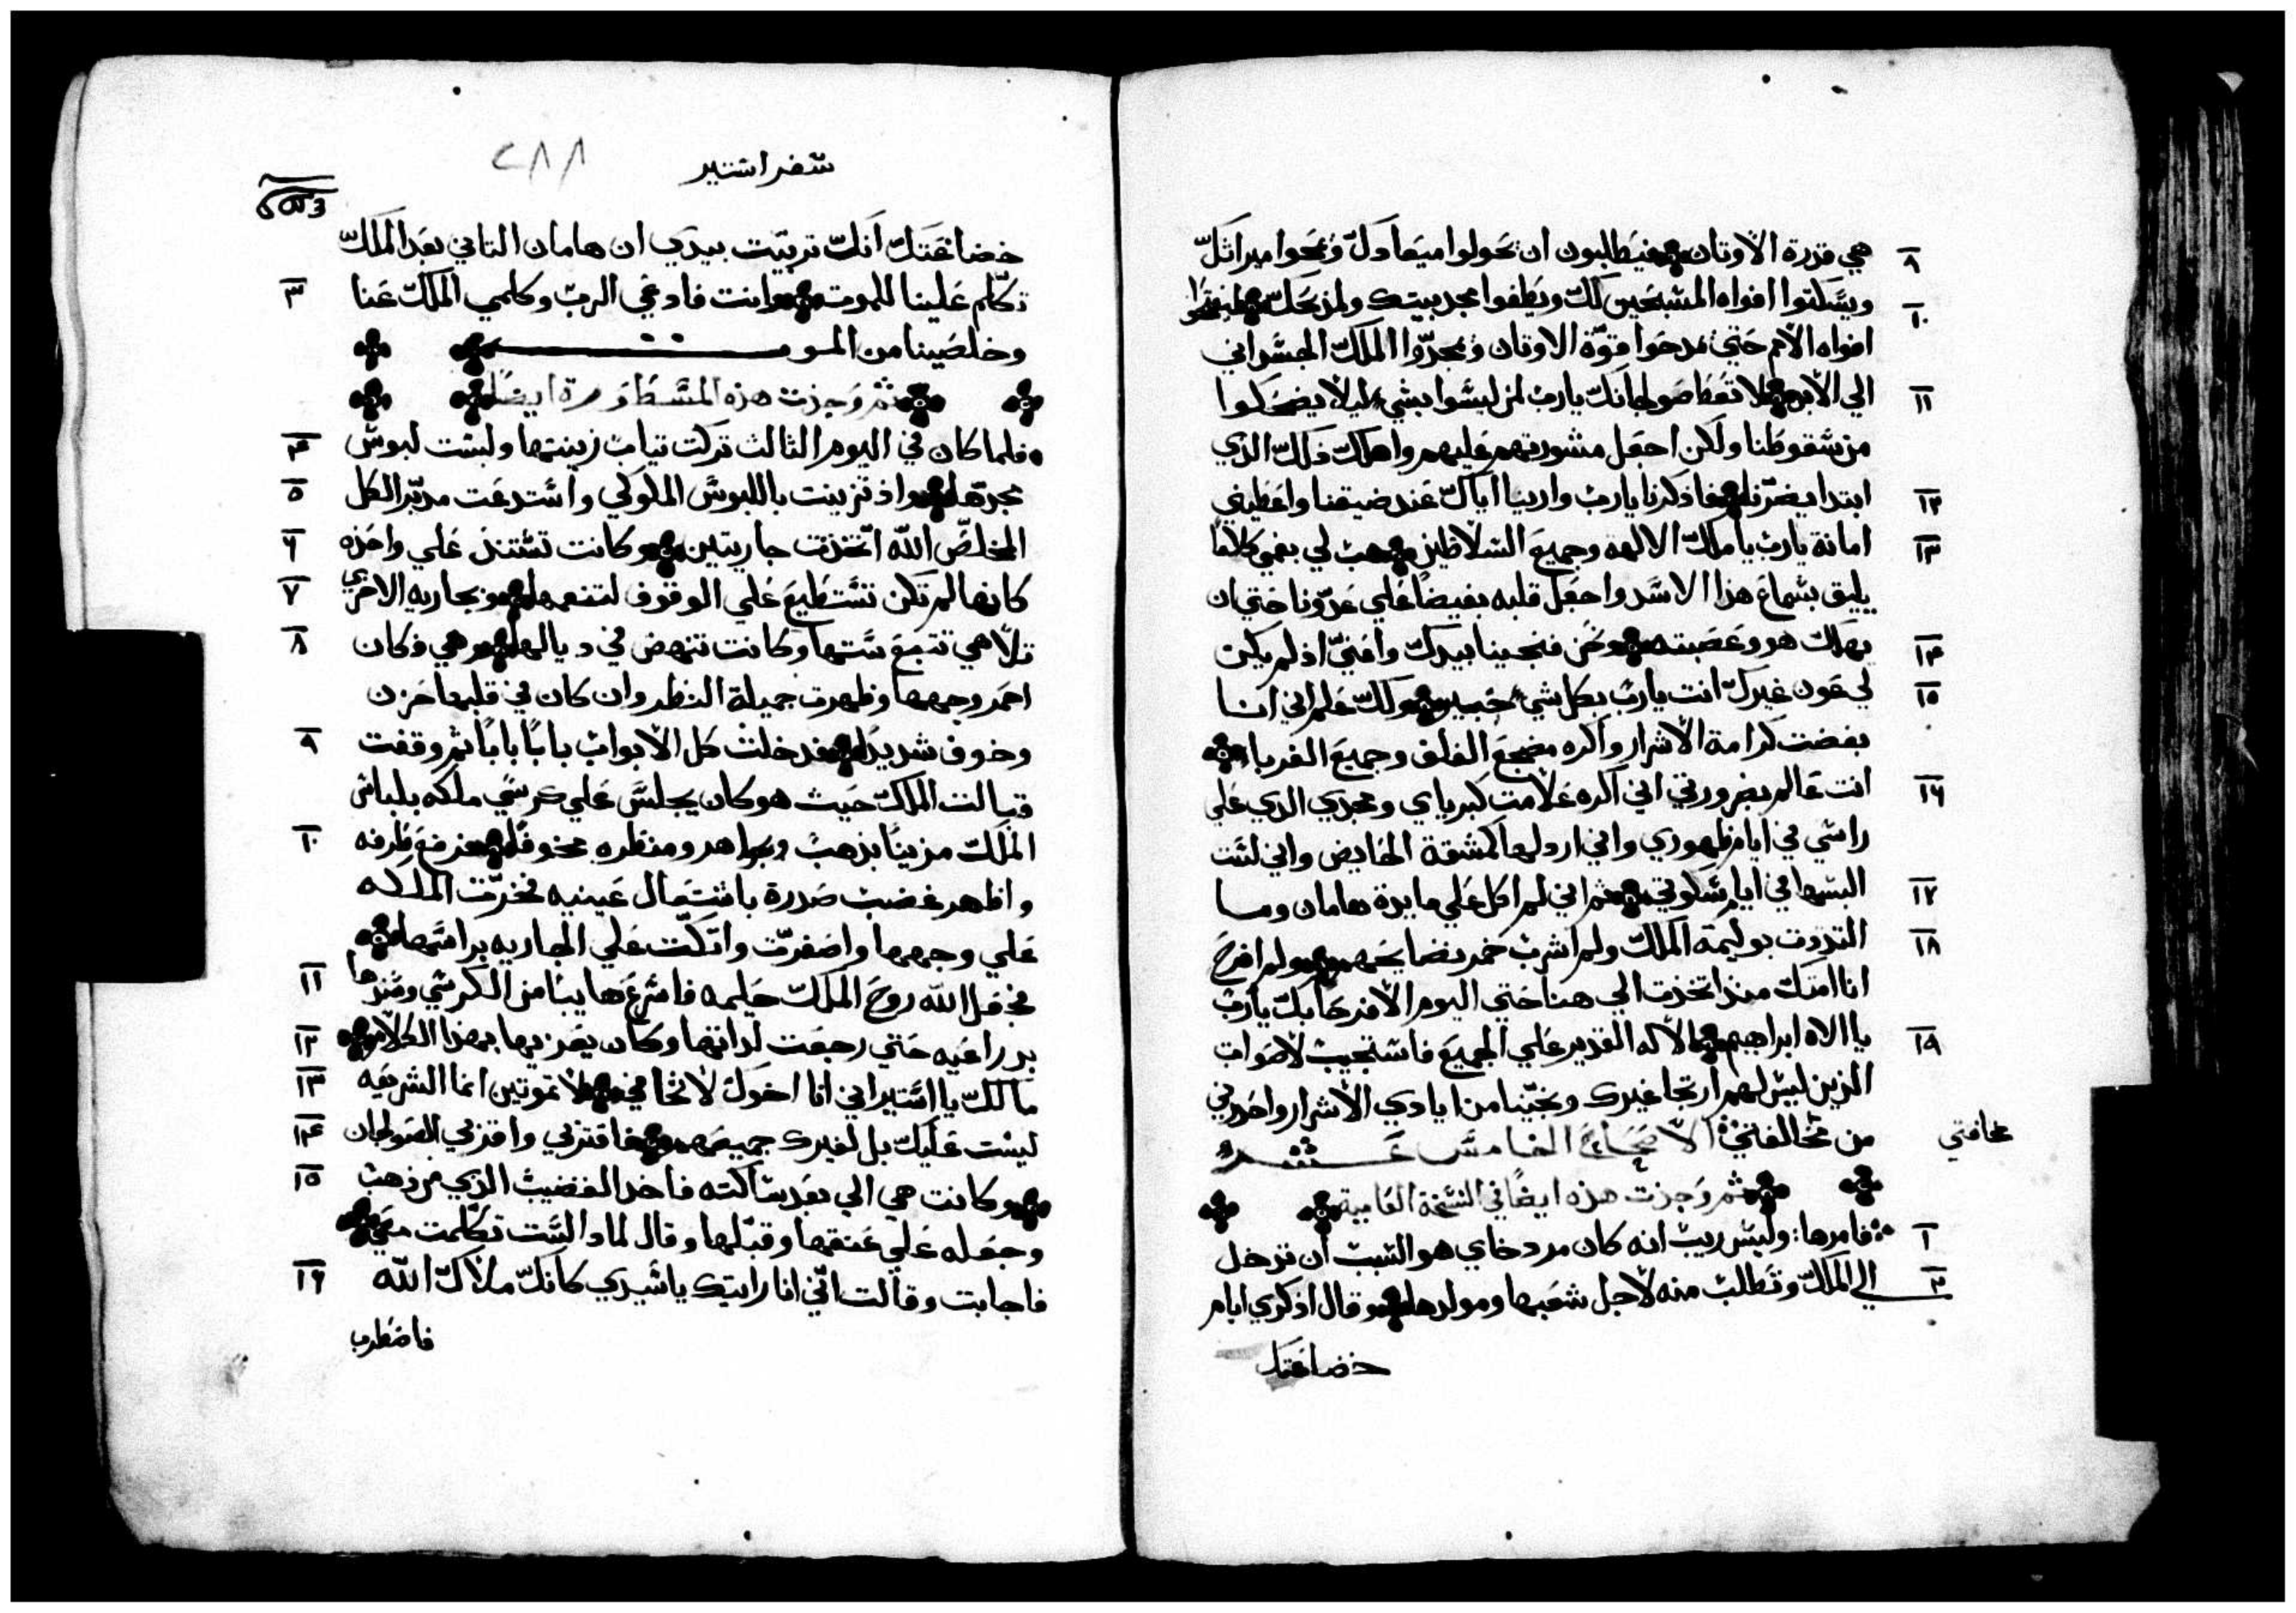 هي قدرة الاوتان فيطلبون ان يحولوا ميعادك ويمحوا ميراتك ٩
ويسكتوا افواه المسبحين لك ويطفوا مجد بيتك ومذبحك ليفتحوا ١٠
افواه الامم حتي يمدحوا قوة الاوتان ويمجدوا الملك الجسداني
الي الابد لا تعطا صولجانك يارب لمن ليسوا بشي ليلا يضحكوا ١١
من سقوطنا ولكن اجعل مشورتهم عليهم واهلك ذلك الذي
ابتدا يضرنا فاذكرنا يارب وارينا اياك عند ضيقنا واعطيني ١٢
امانة يارب يا ملك الالهه وجميع السلاطين هب لي بفمي كلاما ١٣
يليق بسماع هذا الاسد واجعل قلبه بغيضا علي عدونا حتي ان
يهلك هو وعصبته ونحن فنجينا بيدك واعني اذ لم يكن ١٤
لي عون غيرك انت يارب بكل شي خبير ولك علم اني انا ١٥
بغضت كرامة الاشرار واكره مضجع الغلف وجميع الغربا
انت عالم بضرورتي اني اكره علامت كبرياي ومجدي الذي علي ١٦
راسي في ايام ظهوري واني ارذلها كمشقة الحايض واني لست
البسها في ايام سكوتي ثم اني لم اكل علي مايدة هامان وما ١٧
التذوت بوليمة الملك ولم اشرب خمر نضايحهم ولم افرح ١٨
انا امتك منذ اتخذت الي هنا حتي اليوم الا فرحا بك يارب
يا الاه ابراهيم الاله القدير علي الجميع فاستجيب لاصوات ١٩
الذين ليس لهم ارتجا غيرك ونجينا من ايادي الاشرار واحذرني
من مخالفتي الاصحاح الخامس عشر مخافتي
ثم وجدت هذه ايضا في النسخة العامية
فامرها وليس ريب انه كان مردخاي هو السبب ان تدخل ١
الي الملك وتطلب منه لاجل شعبها ومولدها وقال اذكري ايام ٢
خضاعتك
سفر استير ٢٨٨
خضاعتك انك تربيت بيدي ان هامان التاني بعد الملك
تكلم علينا للموت وانت فادعي الرب وكلمي الملك عنا ٣
وخلصينا من الموت
ثم وجدت هذه المسطورة ايضا
فلما كان في اليوم الثالث تركت تياب زينتها ولبست لبوس ٤
مجدها واذ تزينت باللبوس الملوكي واستدعت مدبر الكل ٥
المخلص الله اتخذت جاريتين وكانت تستند علي واحده ٦
كانها لم تكن تستطيع علي الوقوف لتنعمها وجاريه الاخري ٧
تلاهي تتبع ستها وكانت تنهض في ديالها وهي فكان ٨
احمر وجهها وظهرت جميلة النظر وان كان في قلبها حزن
وخوف شديدا فدخلت كل الابواب بابا بابا ثم وقفت ٩
قبالت الملك حيث هو كان يجلس علي كرسي ملكه بلباس
الملك مزينا بذهب وجواهر ومنظره مخوفا فرفع طرفه ١٠
واظهر غضب صدرة باشتعال عينيه فخرت الملكه
علي وجهها واصفرت واتكت علي الجاريه براسها
فجعل الله روح الملك حليمه فاسرع هايبا من الكرسي وسندها ١١
بدراعيه حتي رجعت لداتها وكان يعزيها بهذا الكلام ١٢
مالك يا استير اني انا اخوك لا تخافي لا تموتين انما الشريعه ١٣
ليست عليك بل لغيرك جميعهم فاقتربي واقربي الصولجان ١٤
وكانت هي الي بعد ساكته فاخد القضيب الذي من ذهب ١٥
وجعله علي عنقها وقبلها وقال لماد الست تكلمت معي
فاجابت وقالت اني انا رايتك ياسيدي كانك ملاك الله ١٦
فاضطرب